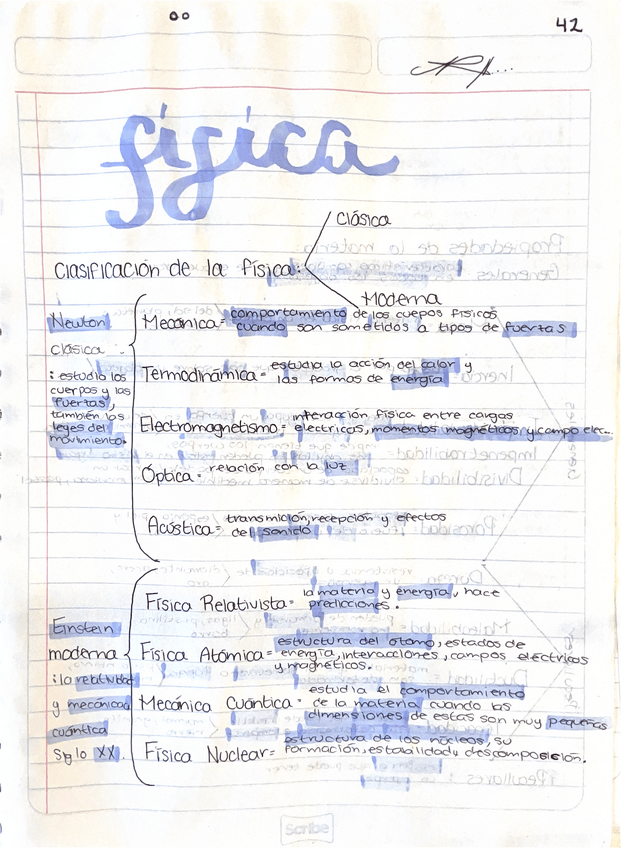 42
física
Clásica
Clasificación de la física:
Moderna
Newton
clásica :
: estudia los
cuerpos y las
fuerzas,
también las
leyes del
movimiento.
Mecánica= comportamiento de los cuepos físicos
cuando son sometidos a tipos de fuerzas
Termodinámica= estudia la acción del calor y
las formas de energía
Electromagnetismo= interacción física entre cargas
electricas, momentos magnéticos y campo elec...
Óptica= relación con la luz
Acústica= transmición, recepción y efectos
del sonido
Einstein
moderna
: la relatividad
y mecánica
cuántica
Siglo XX
Física Relativista= la materia y energía, hace
predicciones.
Física Atómica= estructura del átomo, estados de
energía, interacciones, campos eléctricos
y magnéticos.
Mecánica Cuántica= estudia el comportamiento
de la materia cuando las
dimensiones de estas son muy pequeñas
Física Nuclear= estructura de los núcleos, su
formación, estabilidad y descomposición.
Scribe